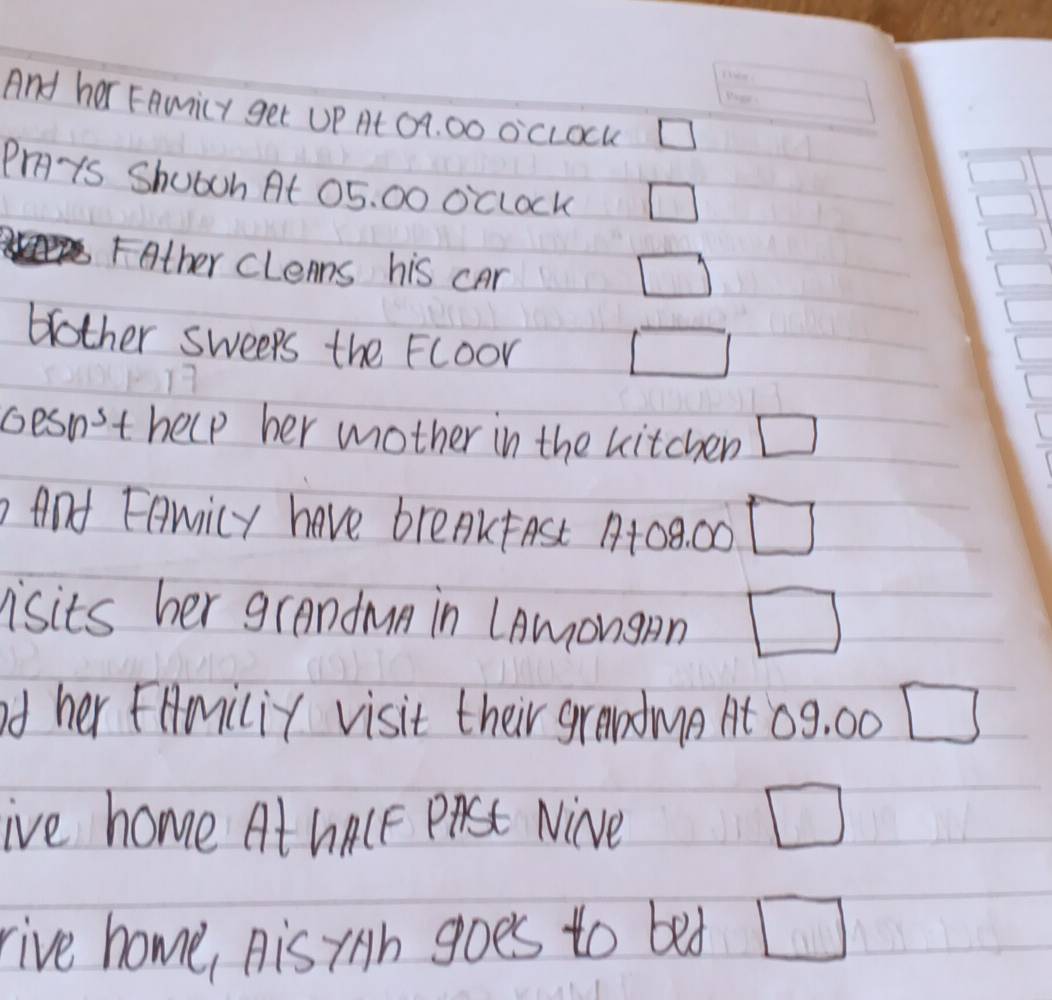 And her FAMiLY get UP At 04.00 O'CLOCK
PrAYS Shubuh At 05.00 O'CLOCK
FAther cLeAns his cAr
brother sweePS the FLOOr
oesn't heLP her mother in the kitchen
And FAMiLY hAve breAkFAst At 08.00
isits her grAndMA in LAMongAn
her FAMiLiY visit their grandMA At 09.00
ive home At hALF PASt NiNe
rive home, AisYAh goes to bed